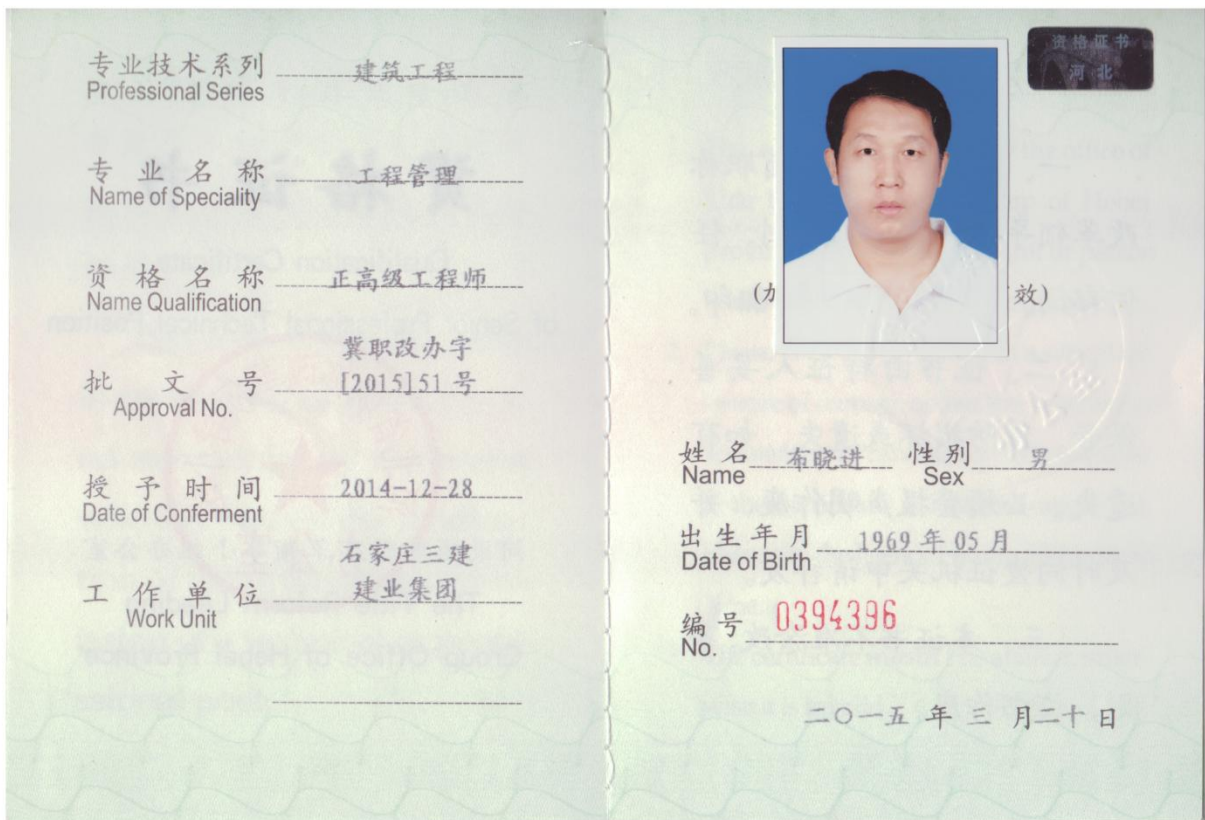 专业技术系列 建筑工程
Professional Series
专业名称 工程管理
Name of Speciality
资格名称 正高级工程师
Name Qualification
冀职改办字
批文号 [2015]51 号
Approval No.
授予时间 2014-12-28
Date of Conferment
石家庄三建
工作单位 建业集团
Work Unit
资格证书
河北
(加 效)
姓名 布晓进 性别 男
Name Sex
出生年月 1969 年 05 月
Date of Birth
编号 0394396
No.
二〇一五 年 三 月二十 日